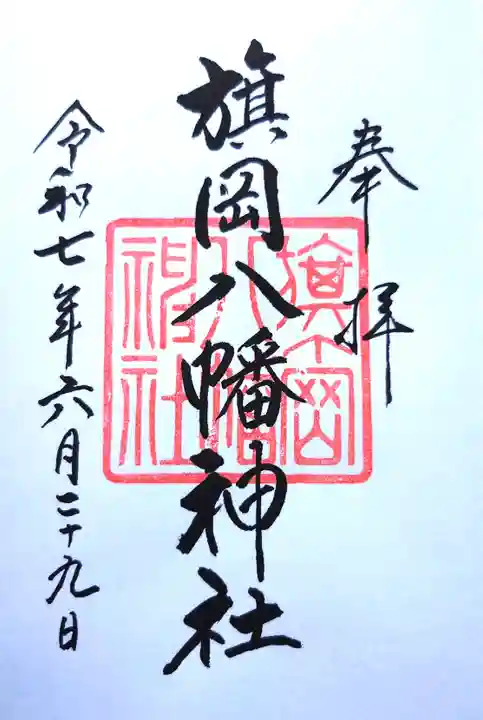 奉拝
旗岡八幡神社
令和七年六月二十九日
旗岡
八幡
神社